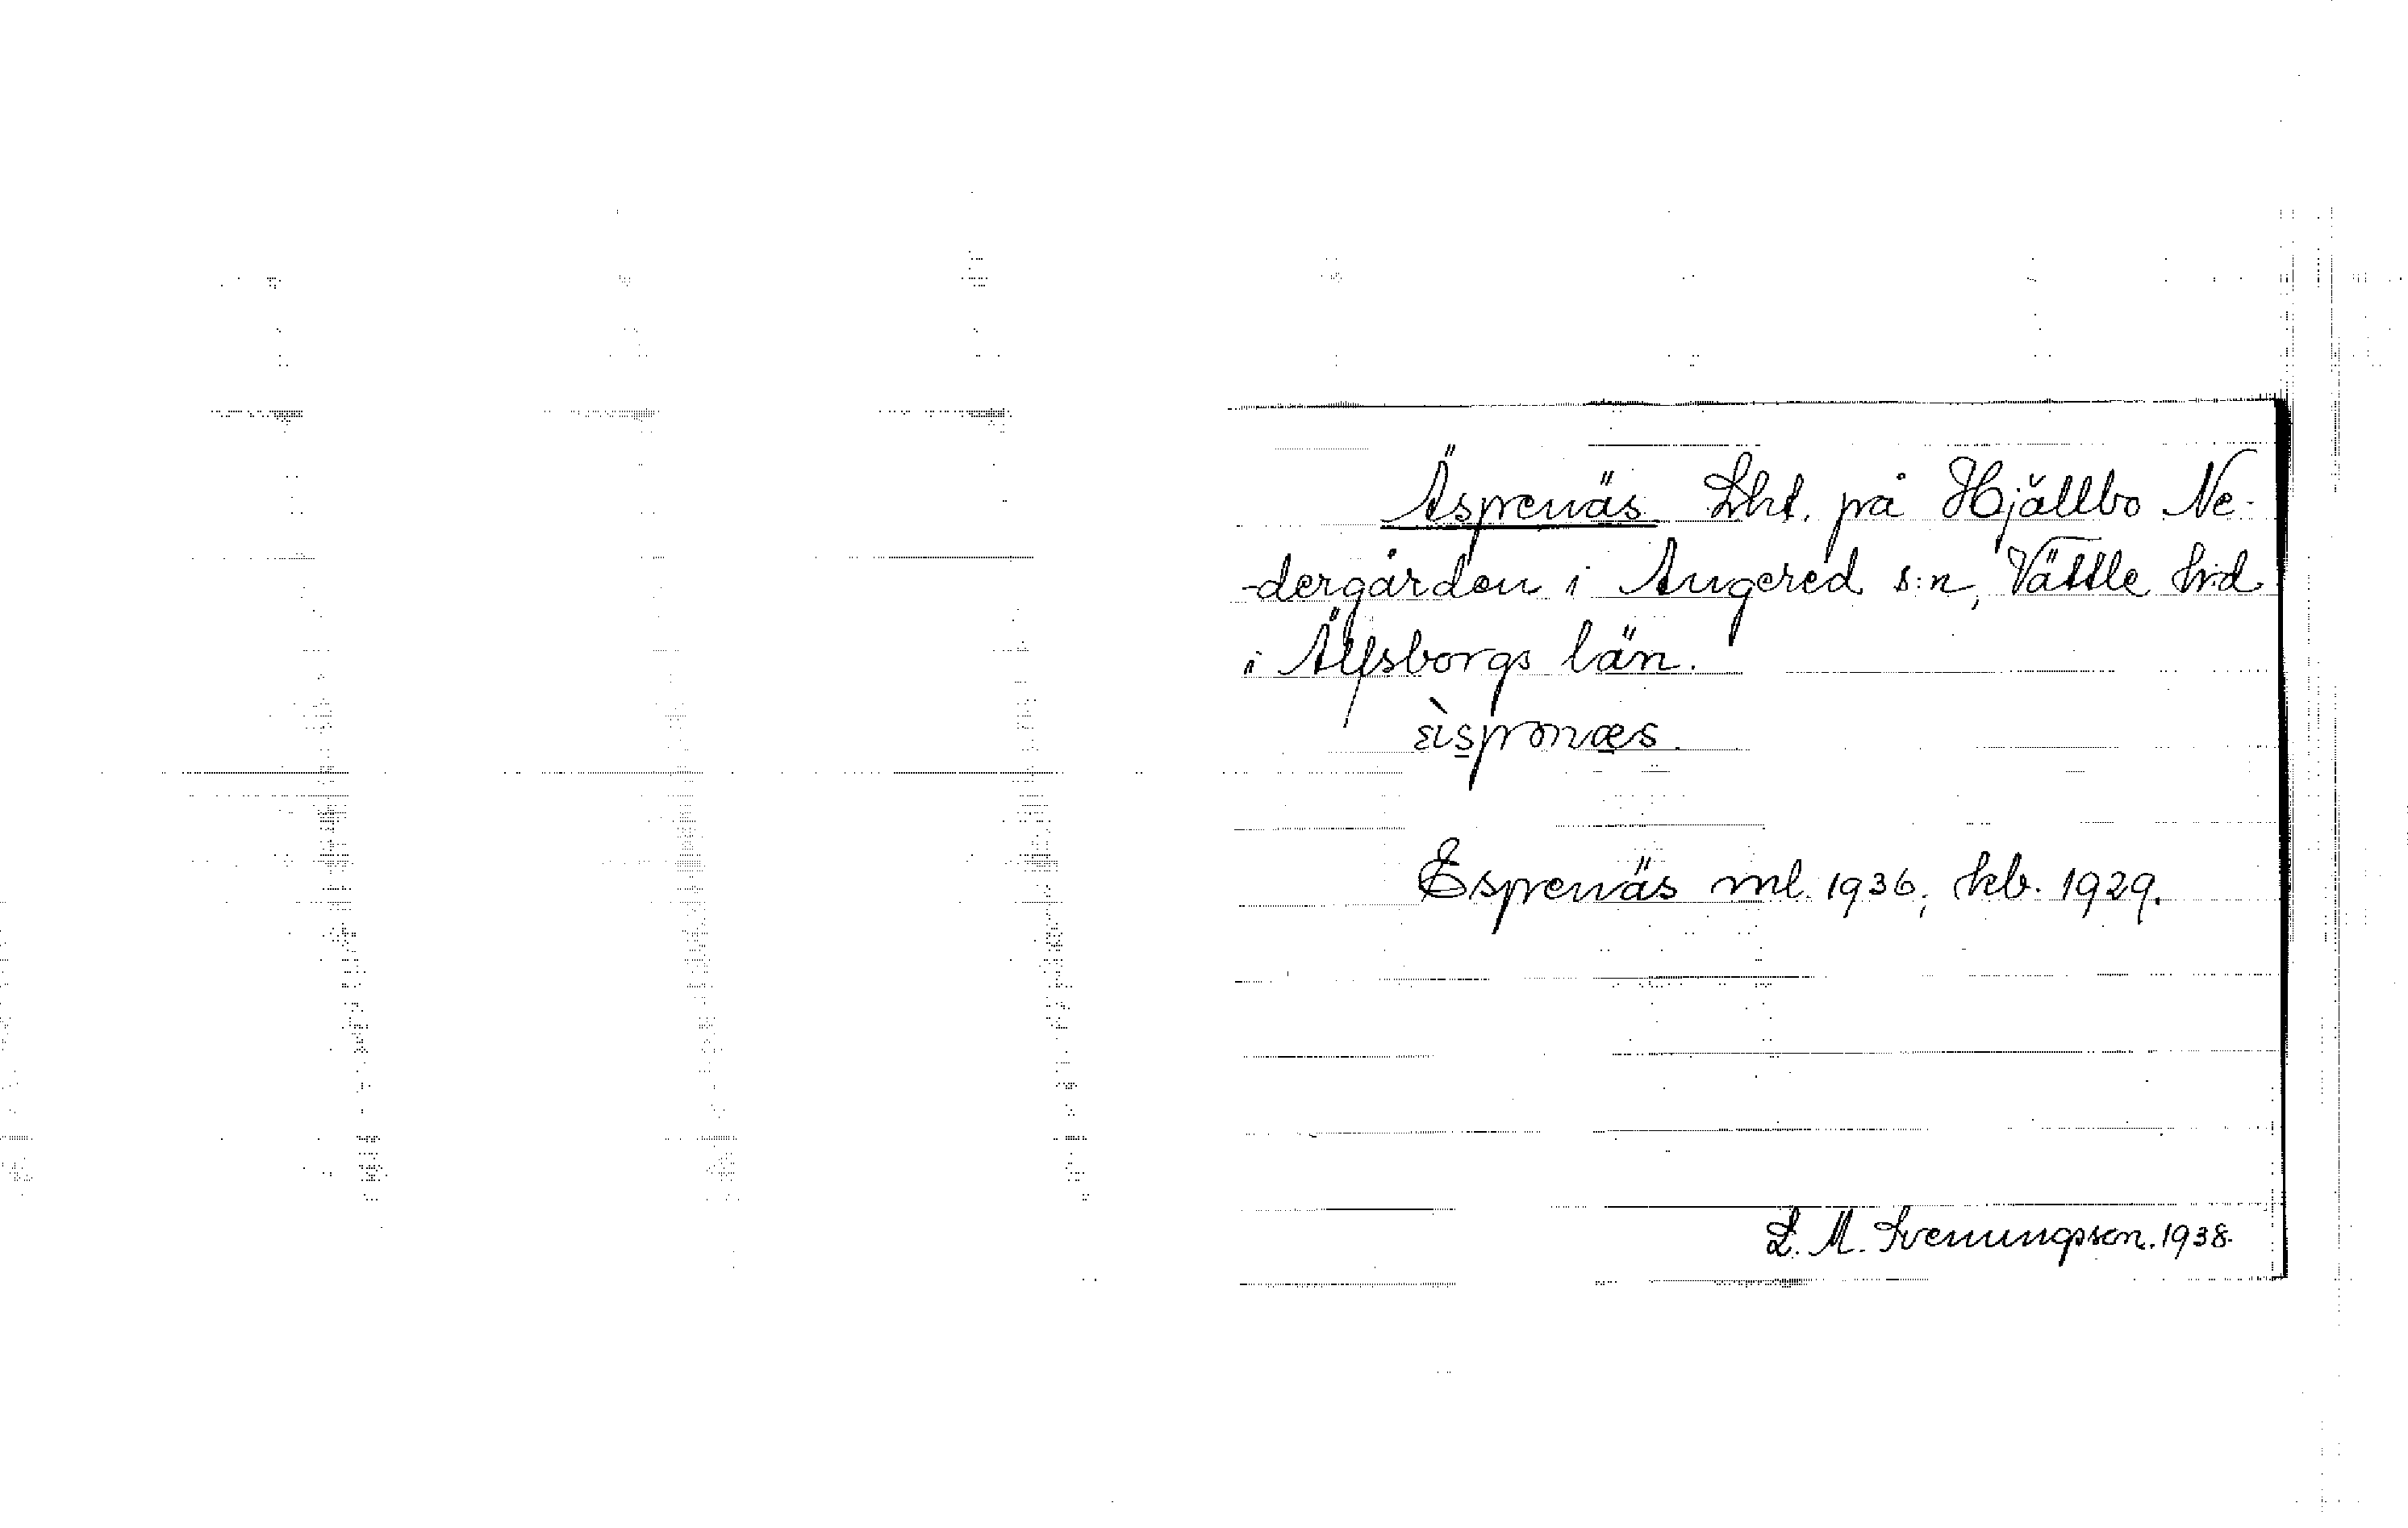 Äsprenäs Lht. på Hjällbo Ne-
-dergården i Angered s:n, Vättle hd
i Älfsborgs län.
Esprenäs ml. 1936, kb. 1929.
L. M. Svenungsson. 1938.